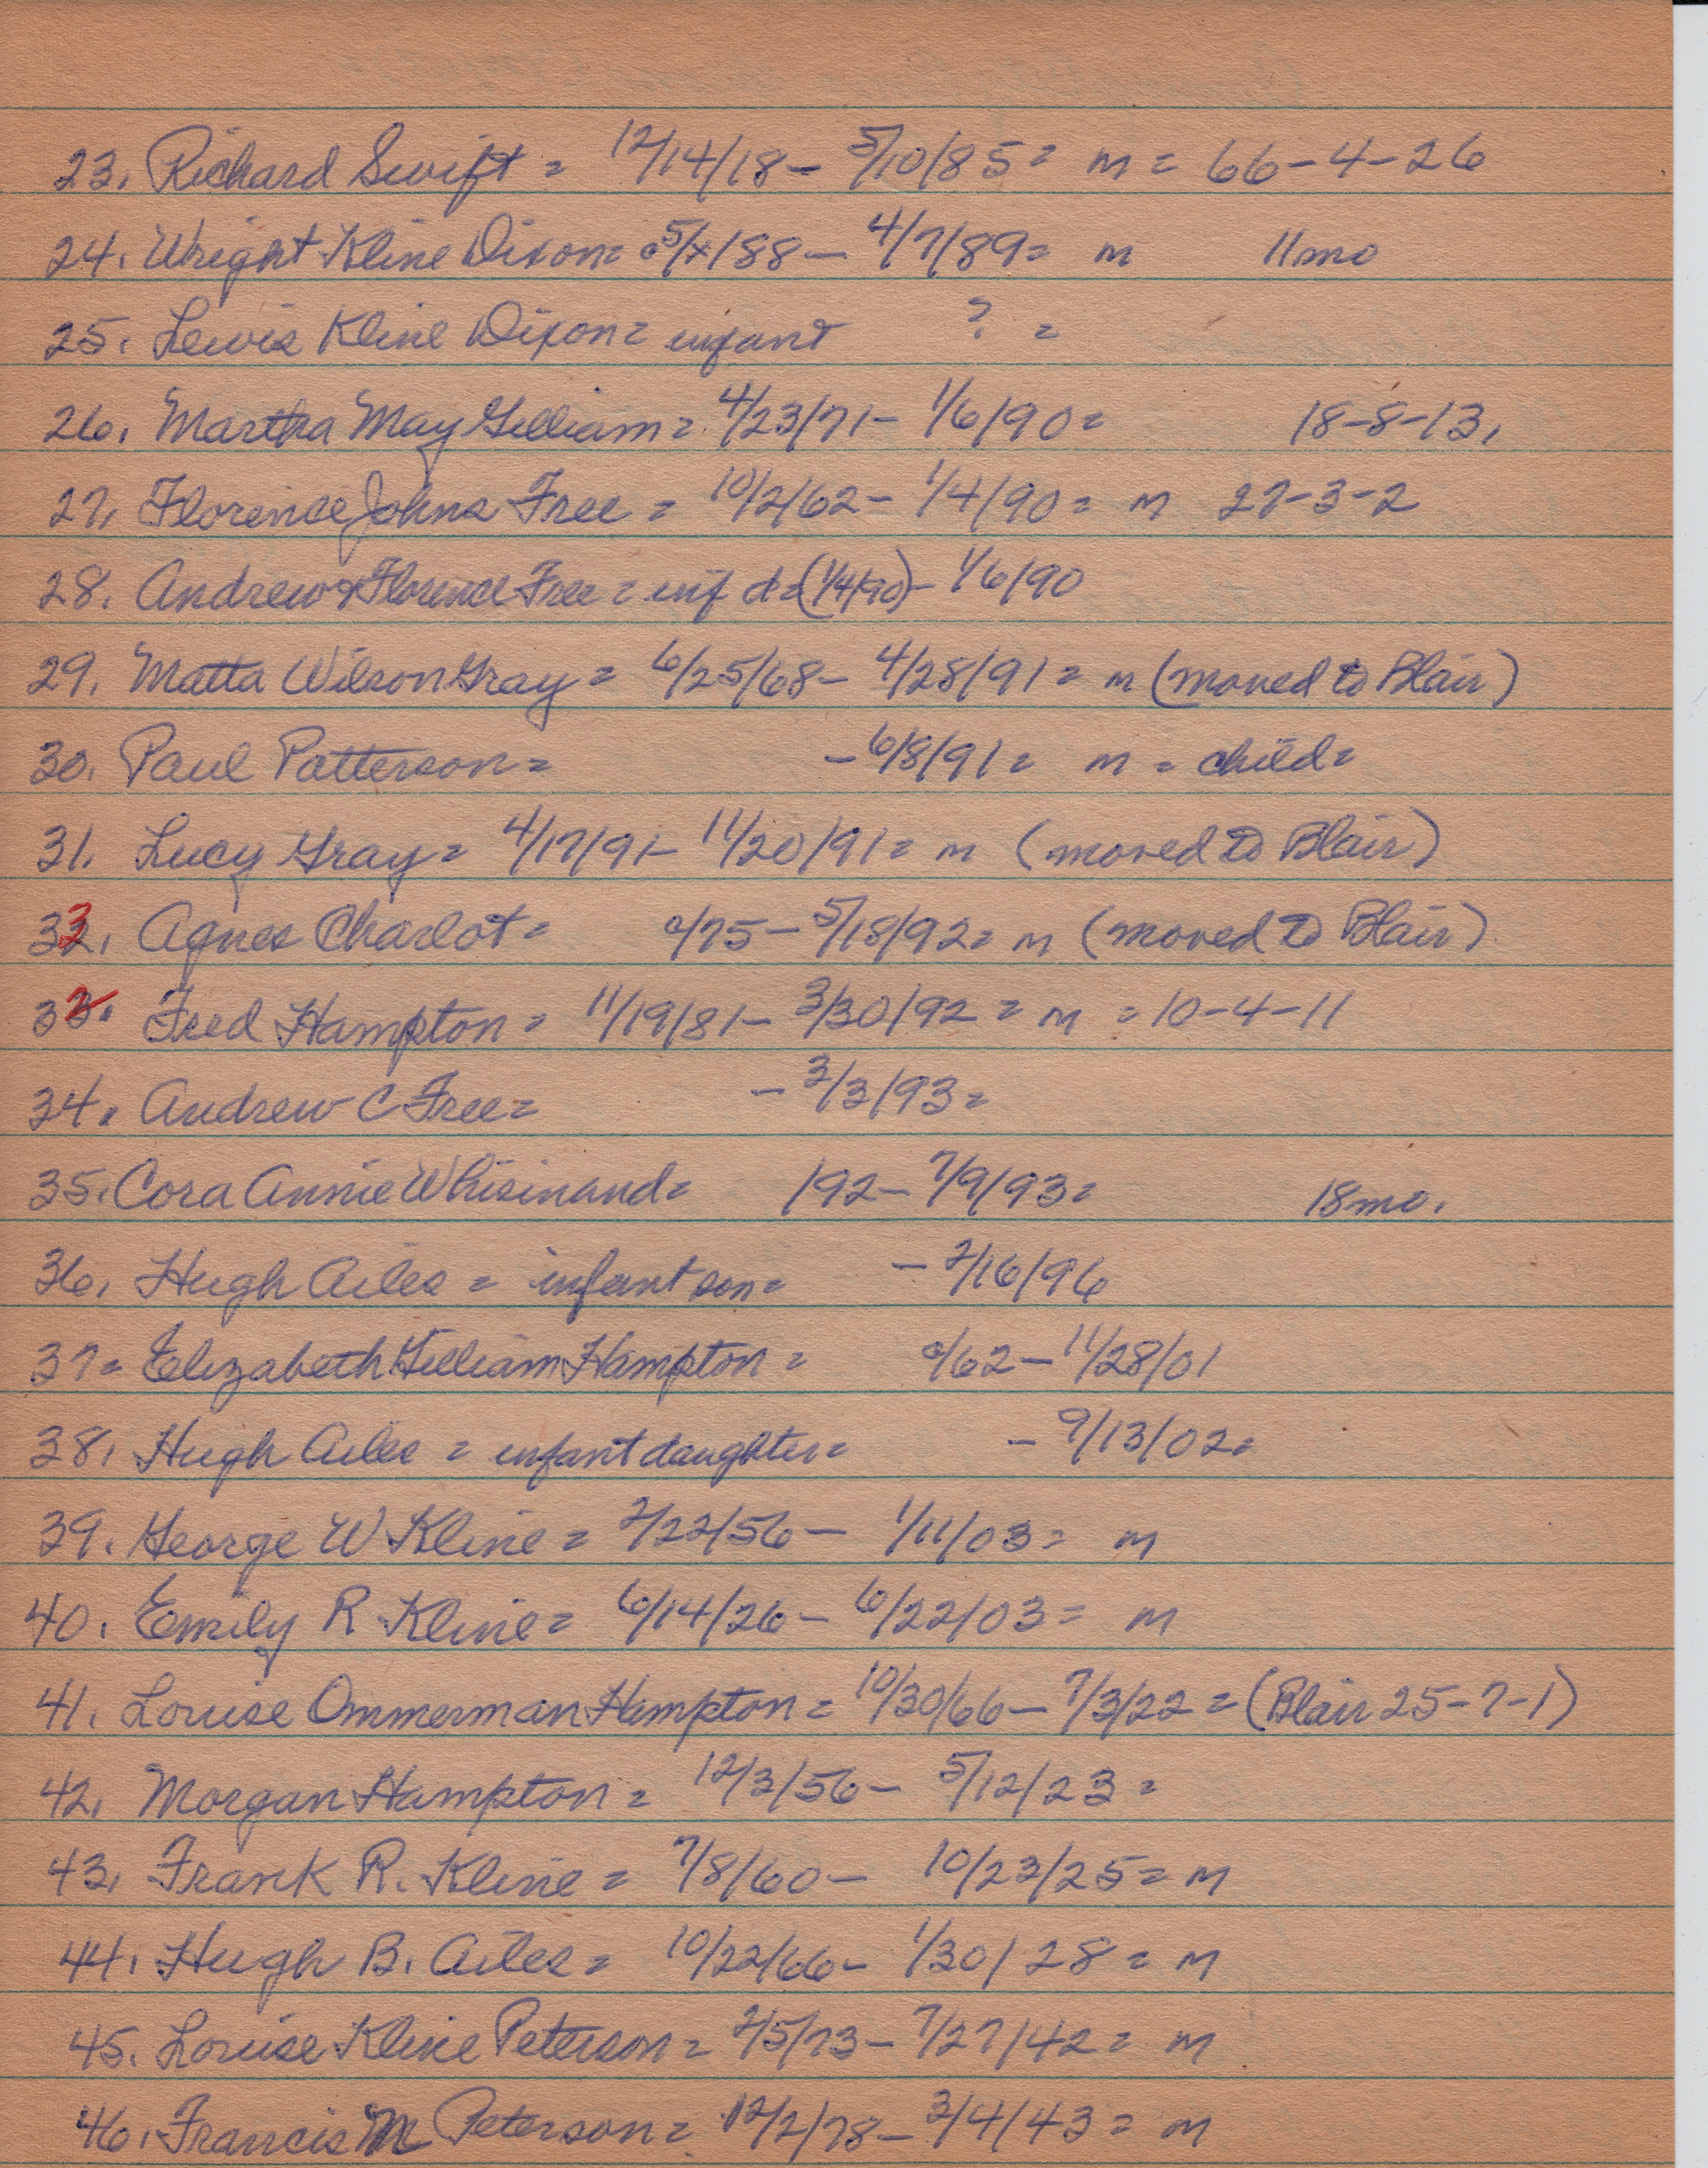 23. Richard Swift = 12/14/18 - 5/10/85 = m = 66-4-26
24. Wright Kline Dixon = c5/x/88 - 4/7/89 = m 11mo
25. Lewis Kline Dixon = infant ? =
26. Martha May Gilliam = 4/23/71 - 1/6/90 = 18-8-13.
27. Florence Johns Free = 10/2/62 - 1/4/90 = m 27-3-2
28. Andrew & Florence Free = inf d = (1/4/90) - 1/6/90
29. Matta Wilson Gray = 6/25/68 - 4/28/91 = m (moved to Blair)
30. Paul Patterson = - 6/8/91 = m = child =
31. Lucy Gray = 4/17/91 - 11/20/91 = m (moved to Blair)
33. Agnes Charlot = c/75 - 5/18/92 = m (moved to Blair)
32. Fred Hampton = 11/19/81 - 3/30/92 = m = 10-4-11
34. Andrew C Free = - 3/3/93 =
35. Cora Annie Whisinand = /92 - 7/9/93 = 18mo.
36. Hugh Ailes = infant son = - 2/16/96
37 = Elizabeth Gilliam Hampton = c/62 - 11/28/01
38. Hugh Ailes = infant daughter = - 9/13/02 =
39. George W Kline = 2/22/56 - 1/11/03 = m
40. Emily R Kline = 6/14/26 - 6/22/03 = m
41. Louise Ommerman Hampton = 10/30/66 - 7/3/22 = (Blair 25-7-1)
42. Morgan Hampton = 12/3/56 - 5/12/23 =
43. Frank R. Kline = 7/8/60 - 10/23/25 = m
44. Hugh B. Ailes = 10/22/66 - 1/30/28 = m
45. Louise Kline Peterson = 2/5/73 - 7/27/42 = m
46. Francis M Peterson = 12/2/78 - 3/4/43 = m